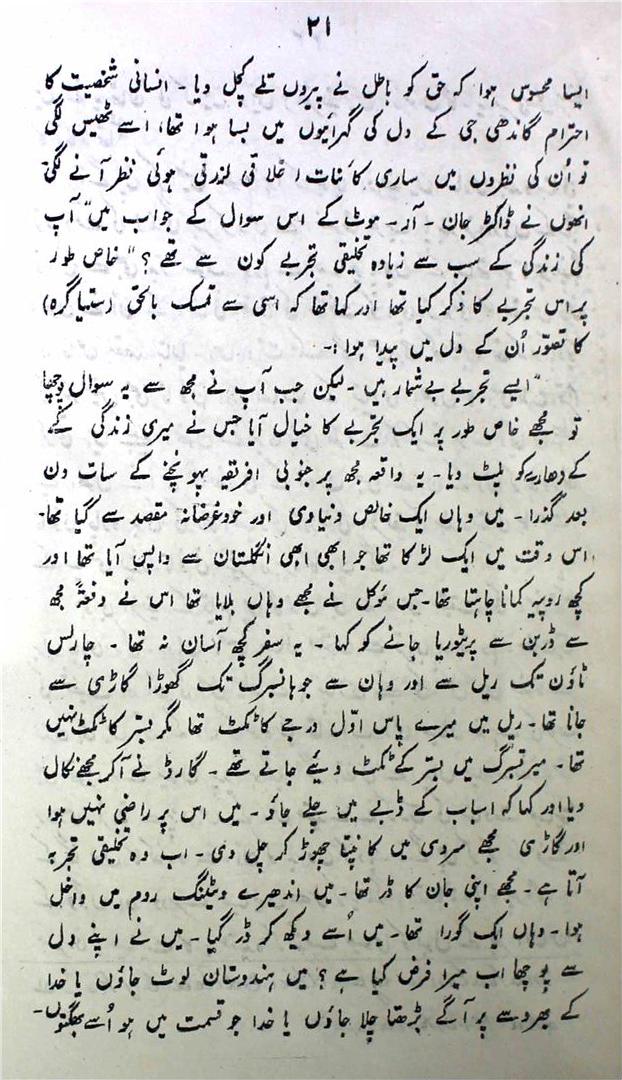 ۲۱
ایسا محسوس ہوا کہ حق کو باطل نے پیروں تلے کچل دیا۔ انسانی شخصیت کا
احترام گاندھی جی کے دل کی گہرائیوں میں بسا ہوا تھا، اسے ٹھیس لگی
تو اُن کی نظروں میں ساری کائنات اخلاقی لرزتی ہوئی نظر آنے لگی۔
انھوں نے ڈاکٹر جان۔ آر۔ موٹ کے اس سوال کے جواب میں "آپ
کی زندگی کے سب سے زیادہ تخلیقی تجربے کون سے تھے؟" خاص طور
پر اس تجربے کا ذکر کیا تھا اور کہا تھا کہ اسی سے تمسک بالحق (ستیاگرہ)
کا تصوّر اُن کے دل میں پیدا ہوا:۔
"ایسے تجربے بے شمار ہیں۔ لیکن جب آپ نے مجھ سے یہ سوال پوچھا
تو مجھے خاص طور پر ایک تجربے کا خیال آیا جس نے میری زندگی کے
کے دھارے کو پلٹ دیا۔ یہ واقعہ مجھ پر جنوبی افریقہ پہونچنے کے سات دن
بعد گذرا۔ میں وہاں ایک خالص دنیاوی اور خودغرضانہ مقصد سے گیا تھا۔
اس وقت میں ایک لڑکا تھا جو ابھی ابھی انگلستان سے واپس آیا تھا اور
کچھ روپیہ کمانا چاہتا تھا۔ جس مؤکل نے مجھے وہاں بلایا تھا اس نے دفعتہً مجھ
سے ڈربن سے پریٹوریا جانے کو کہا۔ یہ سفر کچھ آسان نہ تھا۔ چارلس
ٹاؤن تک ریل سے اور وہاں سے جوہانسبرگ تک گھوڑا گاڑی سے
جانا تھا۔ ریل میں میرے پاس اوّل درجے کا ٹکٹ تھا مگر بستر کا ٹکٹ نہیں
تھا۔ میرتسبرگ میں بستر کے ٹکٹ دیئے جاتے تھے۔ گارڈ نے آکر مجھے نکال
دیا اور کہا کہ اسباب کے ڈبے میں چلے جاؤ۔ میں اس پر راضی نہیں ہوا
اور گاڑی مجھے سردی میں کانپتا چھوڑ کر چل دی۔ اب وہ تخلیقی تجربہ
آتا ہے۔ مجھے اپنی جان کا ڈر تھا۔ میں اندھیرے ویٹنگ روم میں داخل
ہوا۔ وہاں ایک گورا تھا۔ میں اُسے دیکھ کر ڈر گیا۔ میں نے اپنے دل
سے پوچھا اب میرا فرض کیا ہے؟ میں ہندوستان لوٹ جاؤں یا خدا
کے بھروسے پر آگے بڑھتا چلا جاؤں یا خدا جو قسمت میں ہو اُسے بھگتوں۔